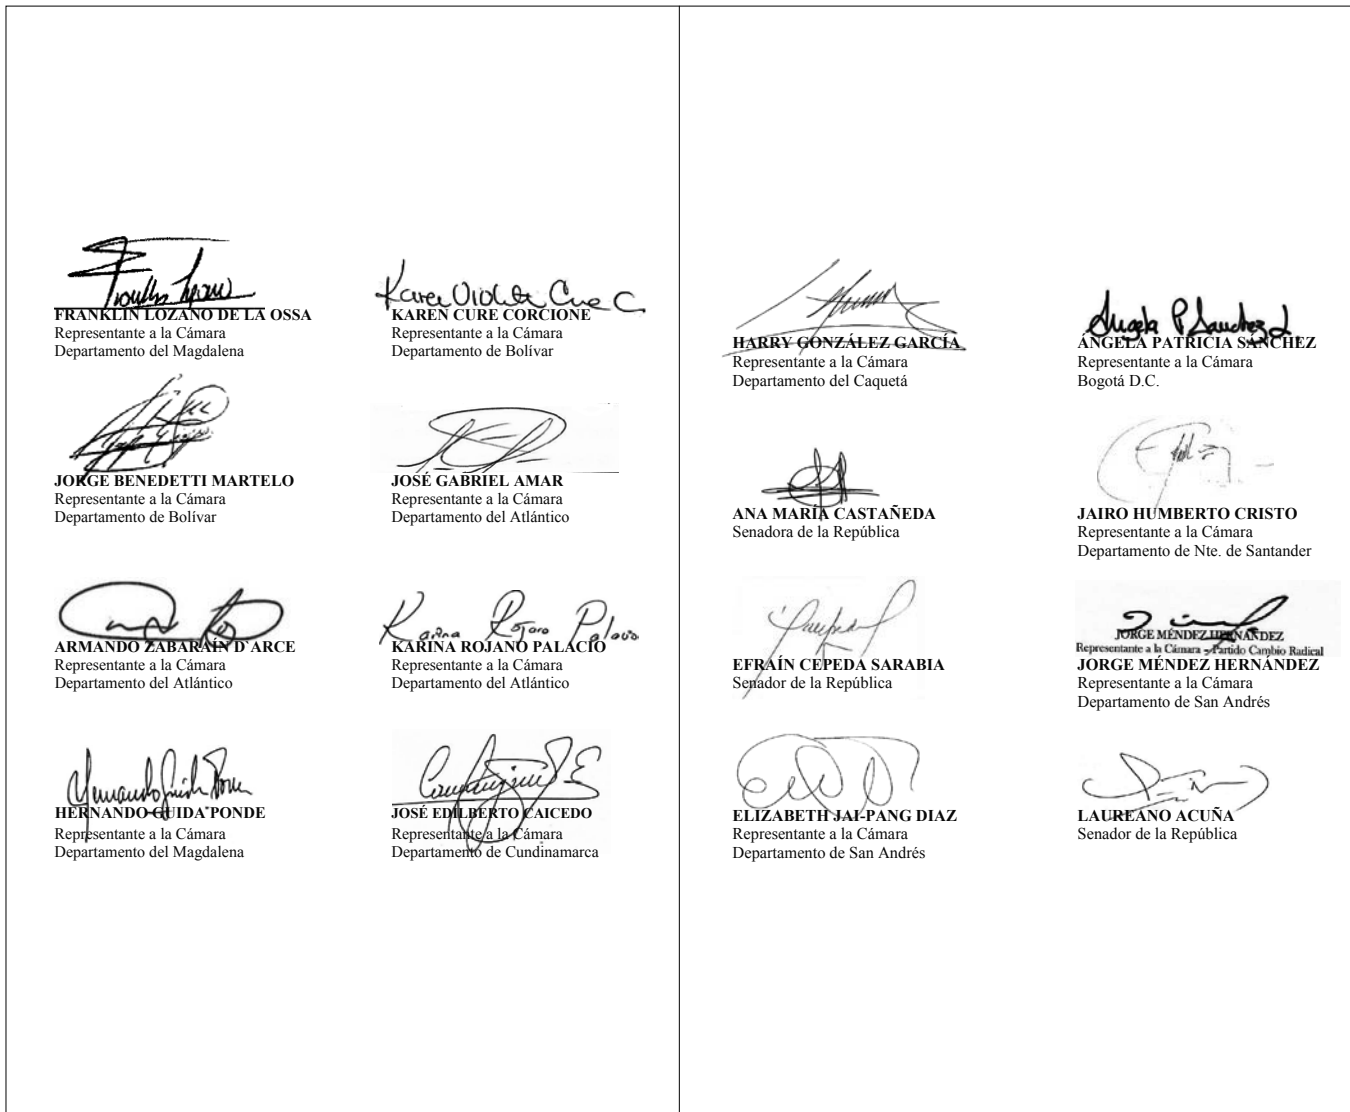 FRANKLIN LOZANO DE LA OSSA
Representante a la Cámara
Departamento del Magdalena
Karen Violeta Cure C
KAREN CURE CORCIONE
Representante a la Cámara
Departamento de Bolívar
JORGE BENEDETTI MARTELO
Representante a la Cámara
Departamento de Bolívar
JOSÉ GABRIEL AMAR
Representante a la Cámara
Departamento del Atlántico
ARMANDO ZABARAÍN D`ARCE
Representante a la Cámara
Departamento del Atlántico
Karina Rojano Palacio
KARINA ROJANO PALACIO
Representante a la Cámara
Departamento del Atlántico
HERNANDO GUIDA PONDE
Representante a la Cámara
Departamento del Magdalena
JOSÉ EDILBERTO CAICEDO
Representante a la Cámara
Departamento de Cundinamarca
HARRY GONZÁLEZ GARCÍA
Representante a la Cámara
Departamento del Caquetá
Angela P Sanchez L
ÁNGELA PATRICIA SÁNCHEZ
Representante a la Cámara
Bogotá D.C.
ANA MARÍA CASTAÑEDA
Senadora de la República
JAIRO HUMBERTO CRISTO
Representante a la Cámara
Departamento de Nte. de Santander
EFRAÍN CEPEDA SARABIA
Senador de la República
JORGE MÉNDEZ HERNÁNDEZ
Representante a la Cámara - Partido Cambio Radical
JORGE MÉNDEZ HERNÁNDEZ
Representante a la Cámara
Departamento de San Andrés
ELIZABETH JAI-PANG DIAZ
Representante a la Cámara
Departamento de San Andrés
LAUREANO ACUÑA
Senador de la República